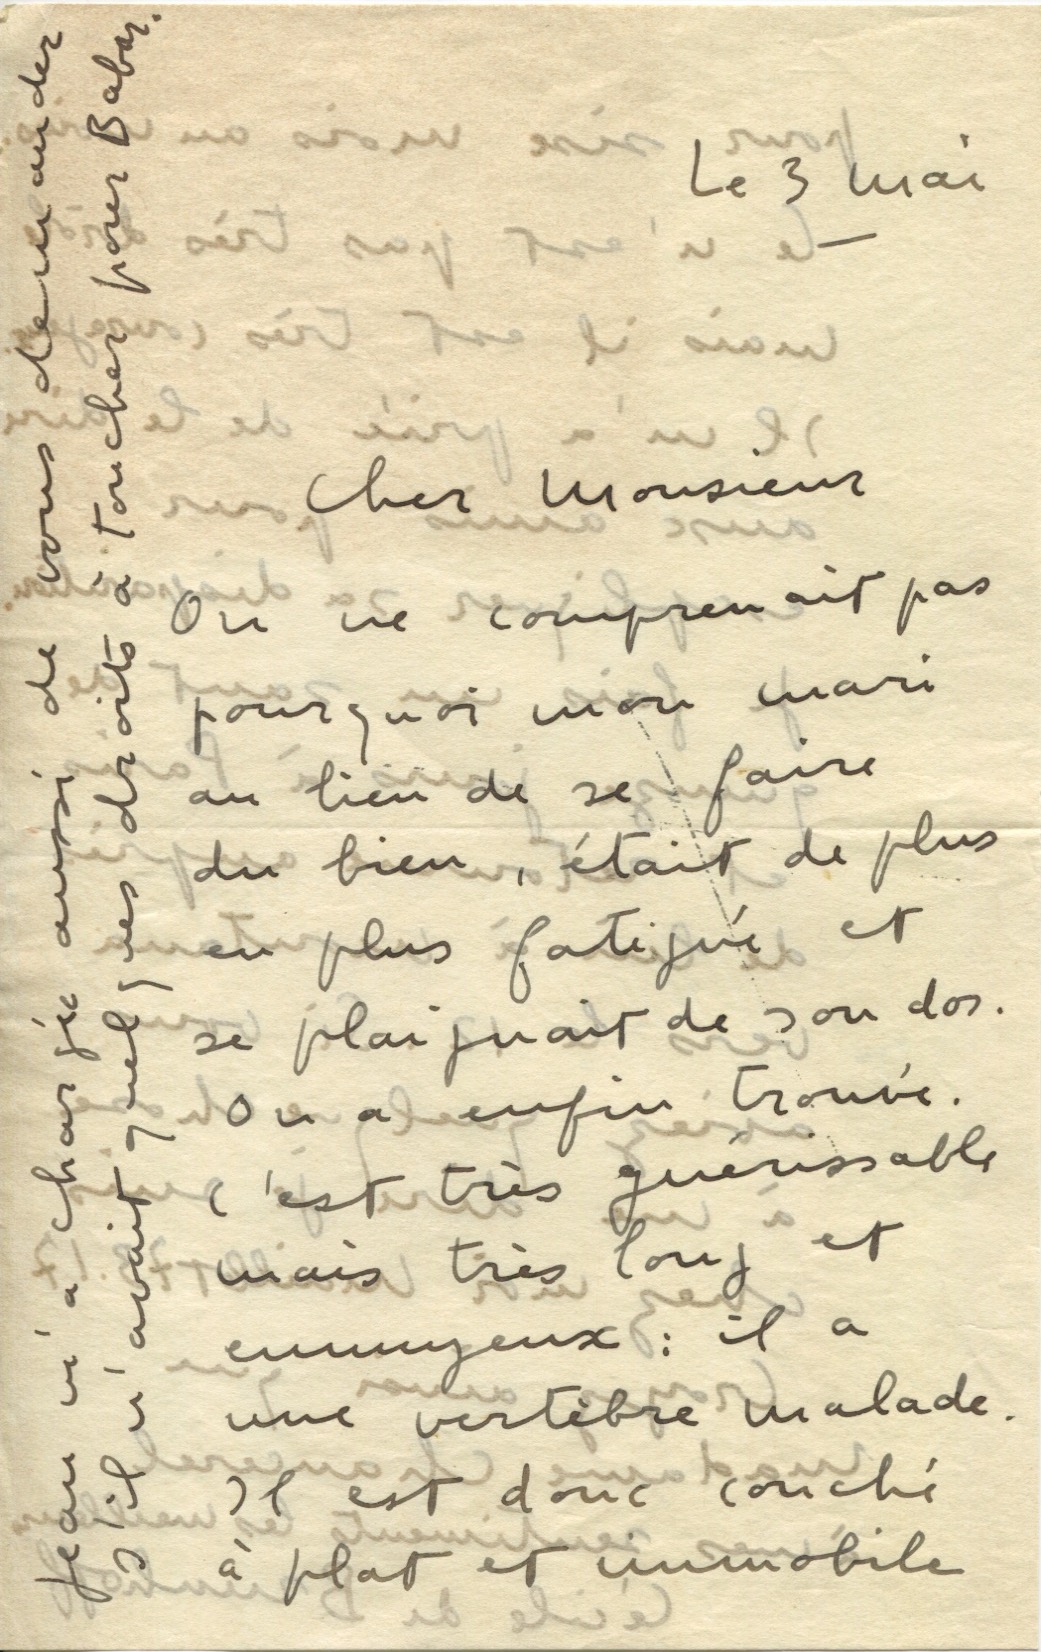 Le 3 mai
Cher Monsieur
On ne comprenait pas
pourquoi mon mari
au lieu de se faire
du bien, était de plus
en plus fatigué et
se plaignait de son dos.
On a enfin trouvé.
C'est très guérissable
mais très long et
ennuyeux : il a
une vertèbre malade.
Il est donc couché
à plat et immobile
Jean m'a chargée aussi de vous demander
s'il n'avait quelques droits à toucher pour Babar.